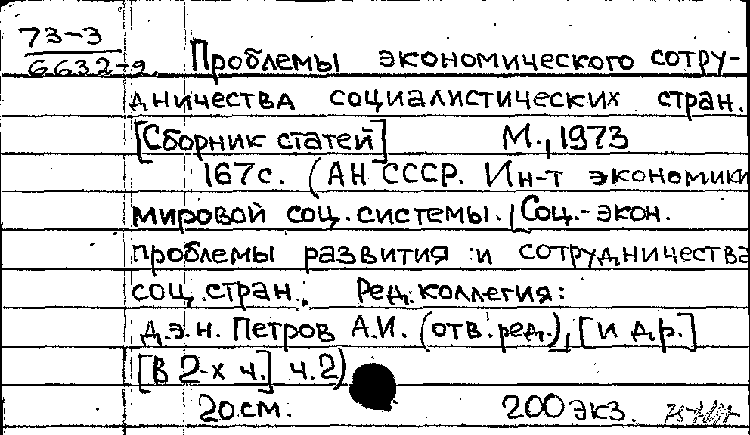 73-3
6632-2. Проблемы экономического сотру-
дничества социалистических стран.
[Сборник статей] М., 1973
167с. (АН СССР. Ин-т экономики
мировой соц. системы. Соц.-экон.
проблемы развития и сотрудничества
соц. стран. Ред. коллегия:
д.э.н. Петров А.И. (отв. ред.), [и др.]
[В 2-х ч.] ч.2)
20см. 200 экз.